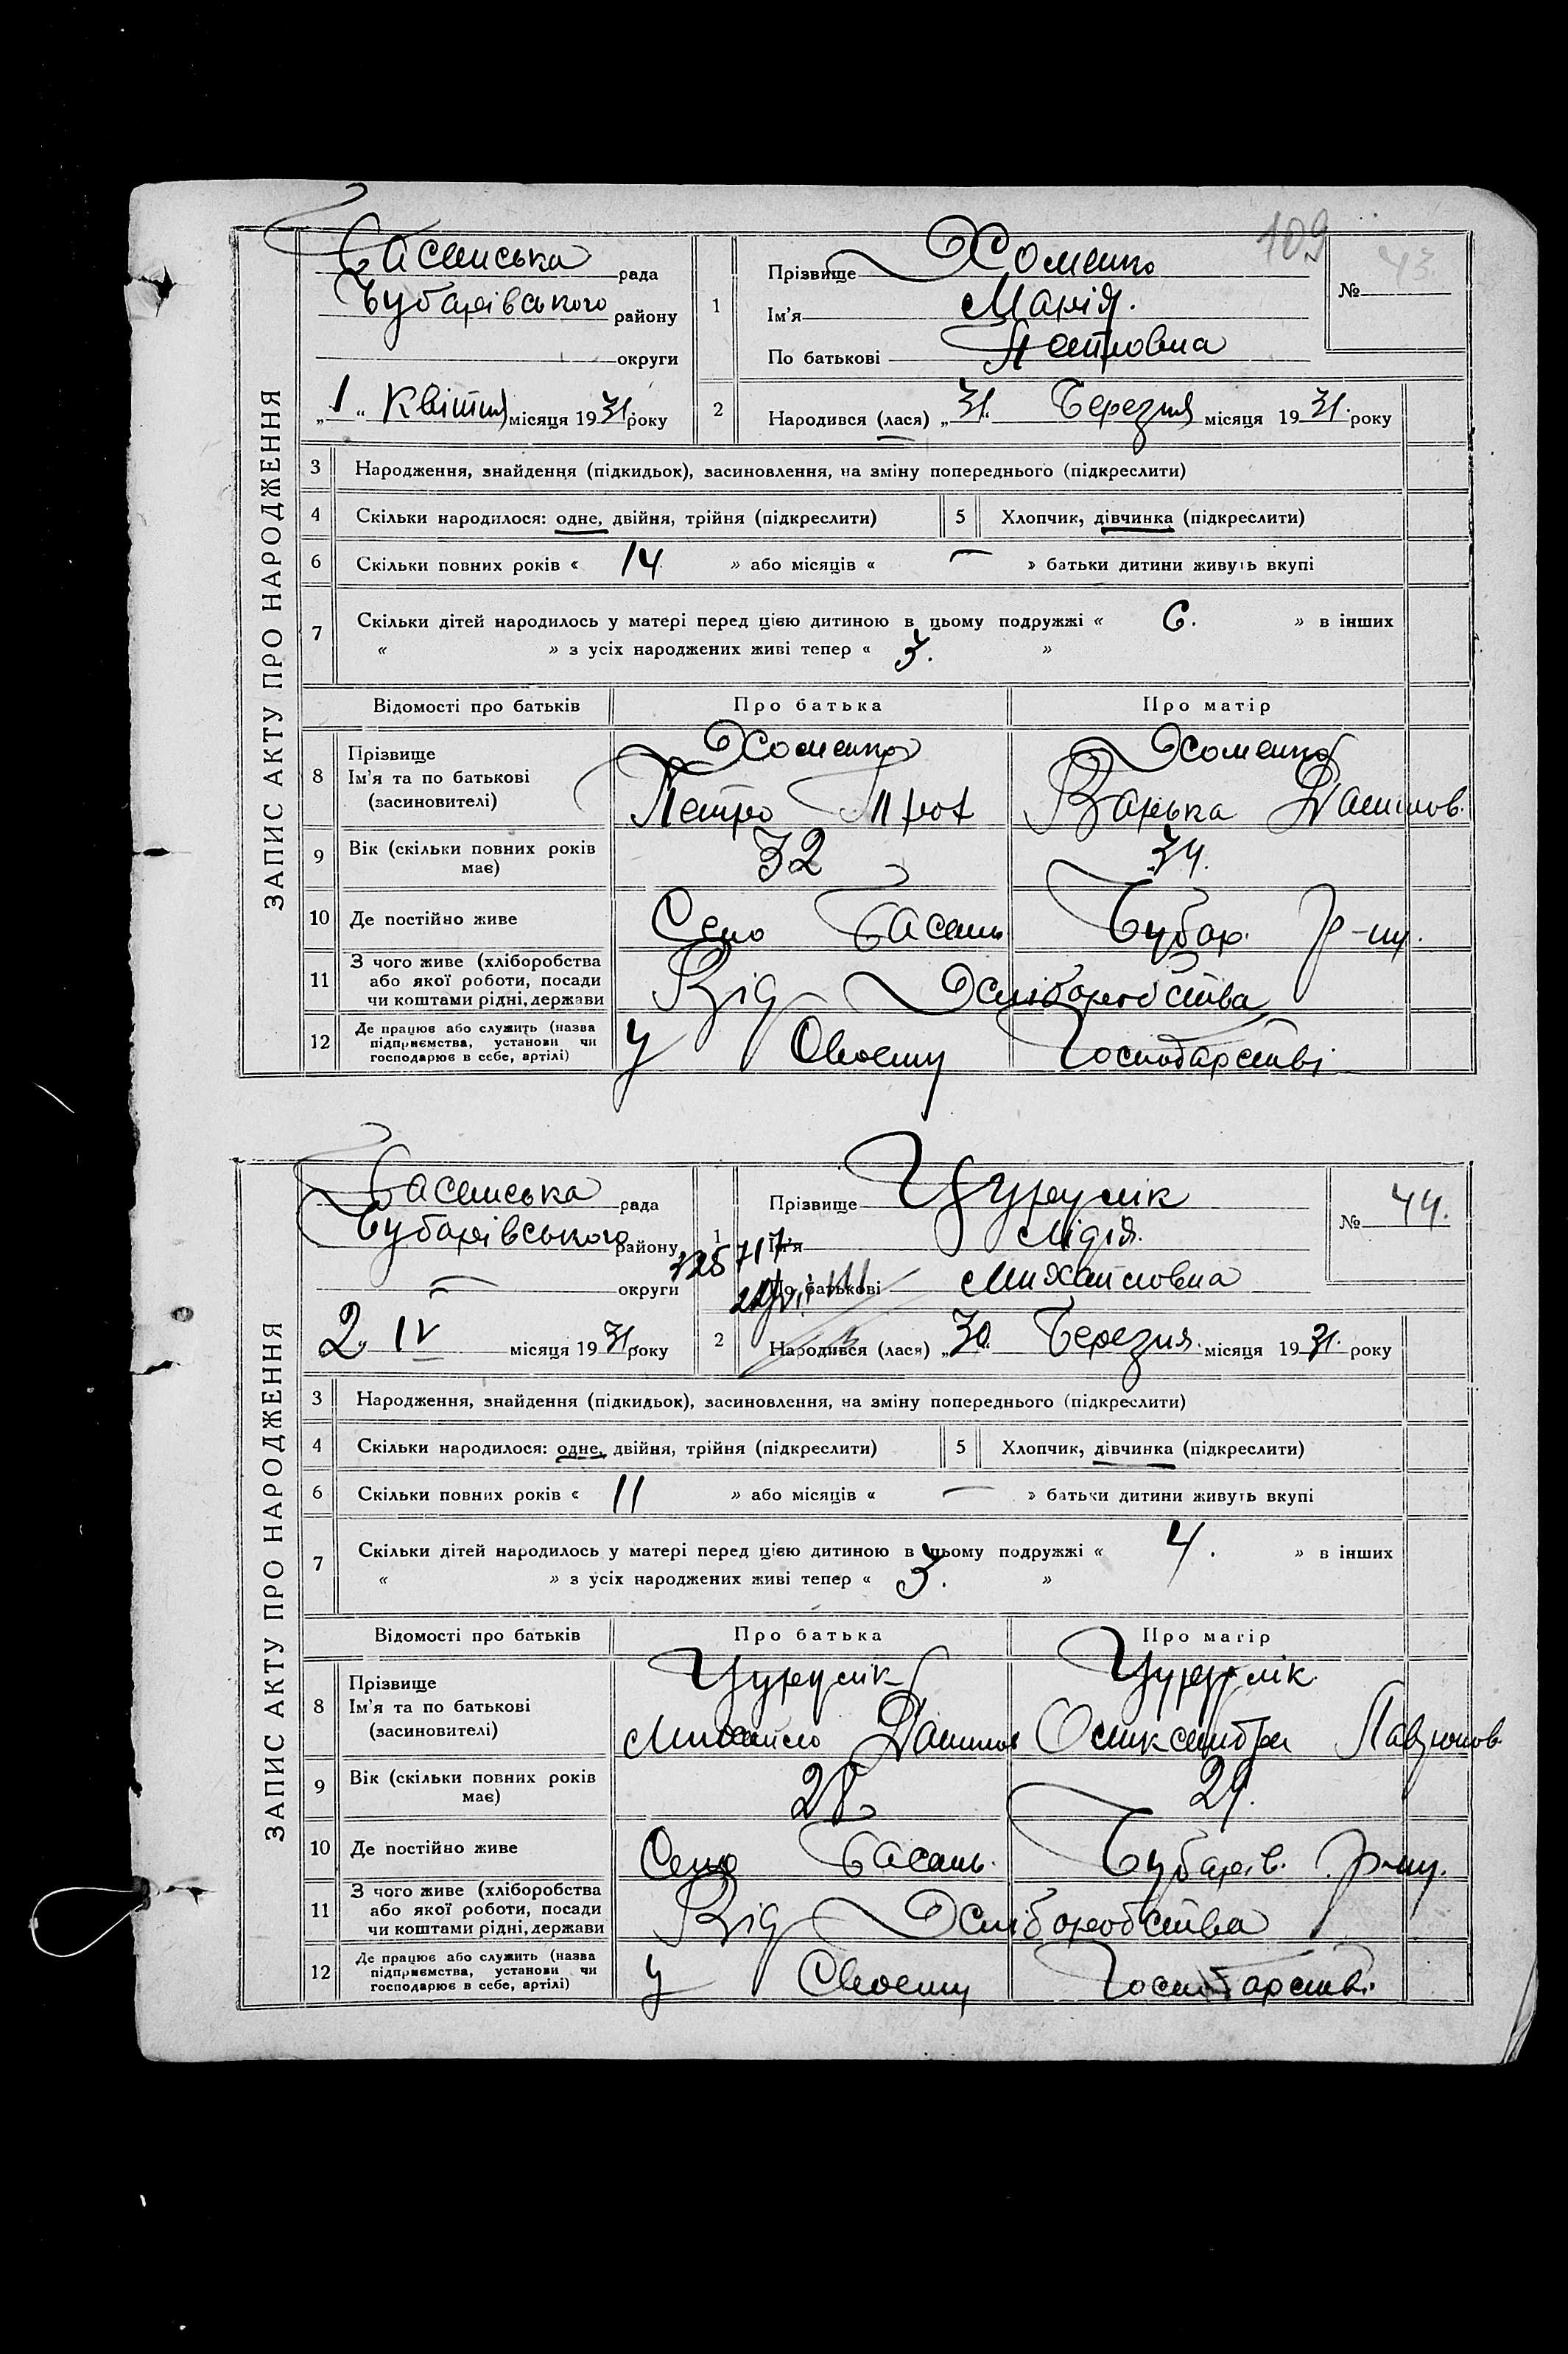 109
ЗАПИС АКТУ ПРО НАРОДЖЕННЯ
Басанська рада
Чубарівського району
округи
„1“ Квітня місяця 1931 року
1 Прізвище Хоменко
Ім'я Марія.
По батькові Петровна
№ 43.
2 Народився (лася) „31. Березня місяця 1931. року
3 Народження, знайдення (підкидьок), засиновлення, на зміну попереднього (підкреслити)
4 Скільки народилося: одне, двійня, трійня (підкреслити) 5 Хлопчик, дівчинка (підкреслити)
6 Скільки повних років « 14 » або місяців « — » батьки дитини живуть вкупі
7 Скільки дітей народилось у матері перед цією дитиною в цьому подружжі « 6. » в інших
« » з усіх народжених живі тепер « 3. »
Відомості про батьків Про батька Про матір
8 Прізвище Хоменко Хоменко
Ім'я та по батькові Петро Варька Данилов.
(засиновителі)
9 Вік (скільки повних років має) 32 34.
10 Де постійно живе Село Басань Чубар. р-ну.
11 З чого живе (хліборобства або якої роботи, посади чи коштами рідні, держави Від Хліборобства
12 Де працює або служить (назва підприємства, установи чи господарює в себе, артілі) У Своєму Господарстві
ЗАПИС АКТУ ПРО НАРОДЖЕННЯ
Басанська рада
Чубарівського району
— округи
2. IV місяця 1931 року
1 Прізвище Цурулік
Ім'я Лідія.
По батькові Михайловна
№ 44.
2 Народився (лася) „30. Березня. місяця 1931. року
3 Народження, знайдення (підкидьок), засиновлення, на зміну попереднього (підкреслити)
4 Скільки народилося: одне, двійня, трійня (підкреслити) 5 Хлопчик, дівчинка (підкреслити)
6 Скільки повних років « 11 » або місяців « — » батьки дитини живуть вкупі
7 Скільки дітей народилось у матері перед цією дитиною в цьому подружжі « 4. » в інших
« » з усіх народжених живі тепер « 3. »
Відомості про батьків Про батька Про матір
8 Прізвище Цурулік Цурулік.
Ім'я та по батькові Михайло Данилов Олександра
(засиновителі)
9 Вік (скільки повних років має) 28. 29.
10 Де постійно живе Село Басань. Чубарів. р-ну.
11 З чого живе (хліборобства або якої роботи, посади чи коштами рідні, держави Від Хліборобства
12 Де працює або служить (назва підприємства, установи чи господарює в себе, артілі) У Своєму Господарстві.